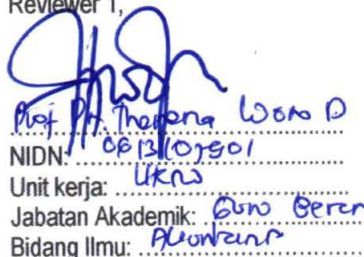 Reviewer 1,
Prof Dr. Theresia Woro D
NIDN: 0613107501
Unit kerja: UKRW
Jabatan Akademik: Guru Besar
Bidang Ilmu: Akuntansi